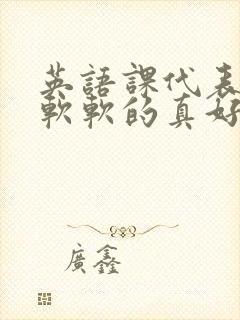 英語課代表
軟軟的真好
廣鑫